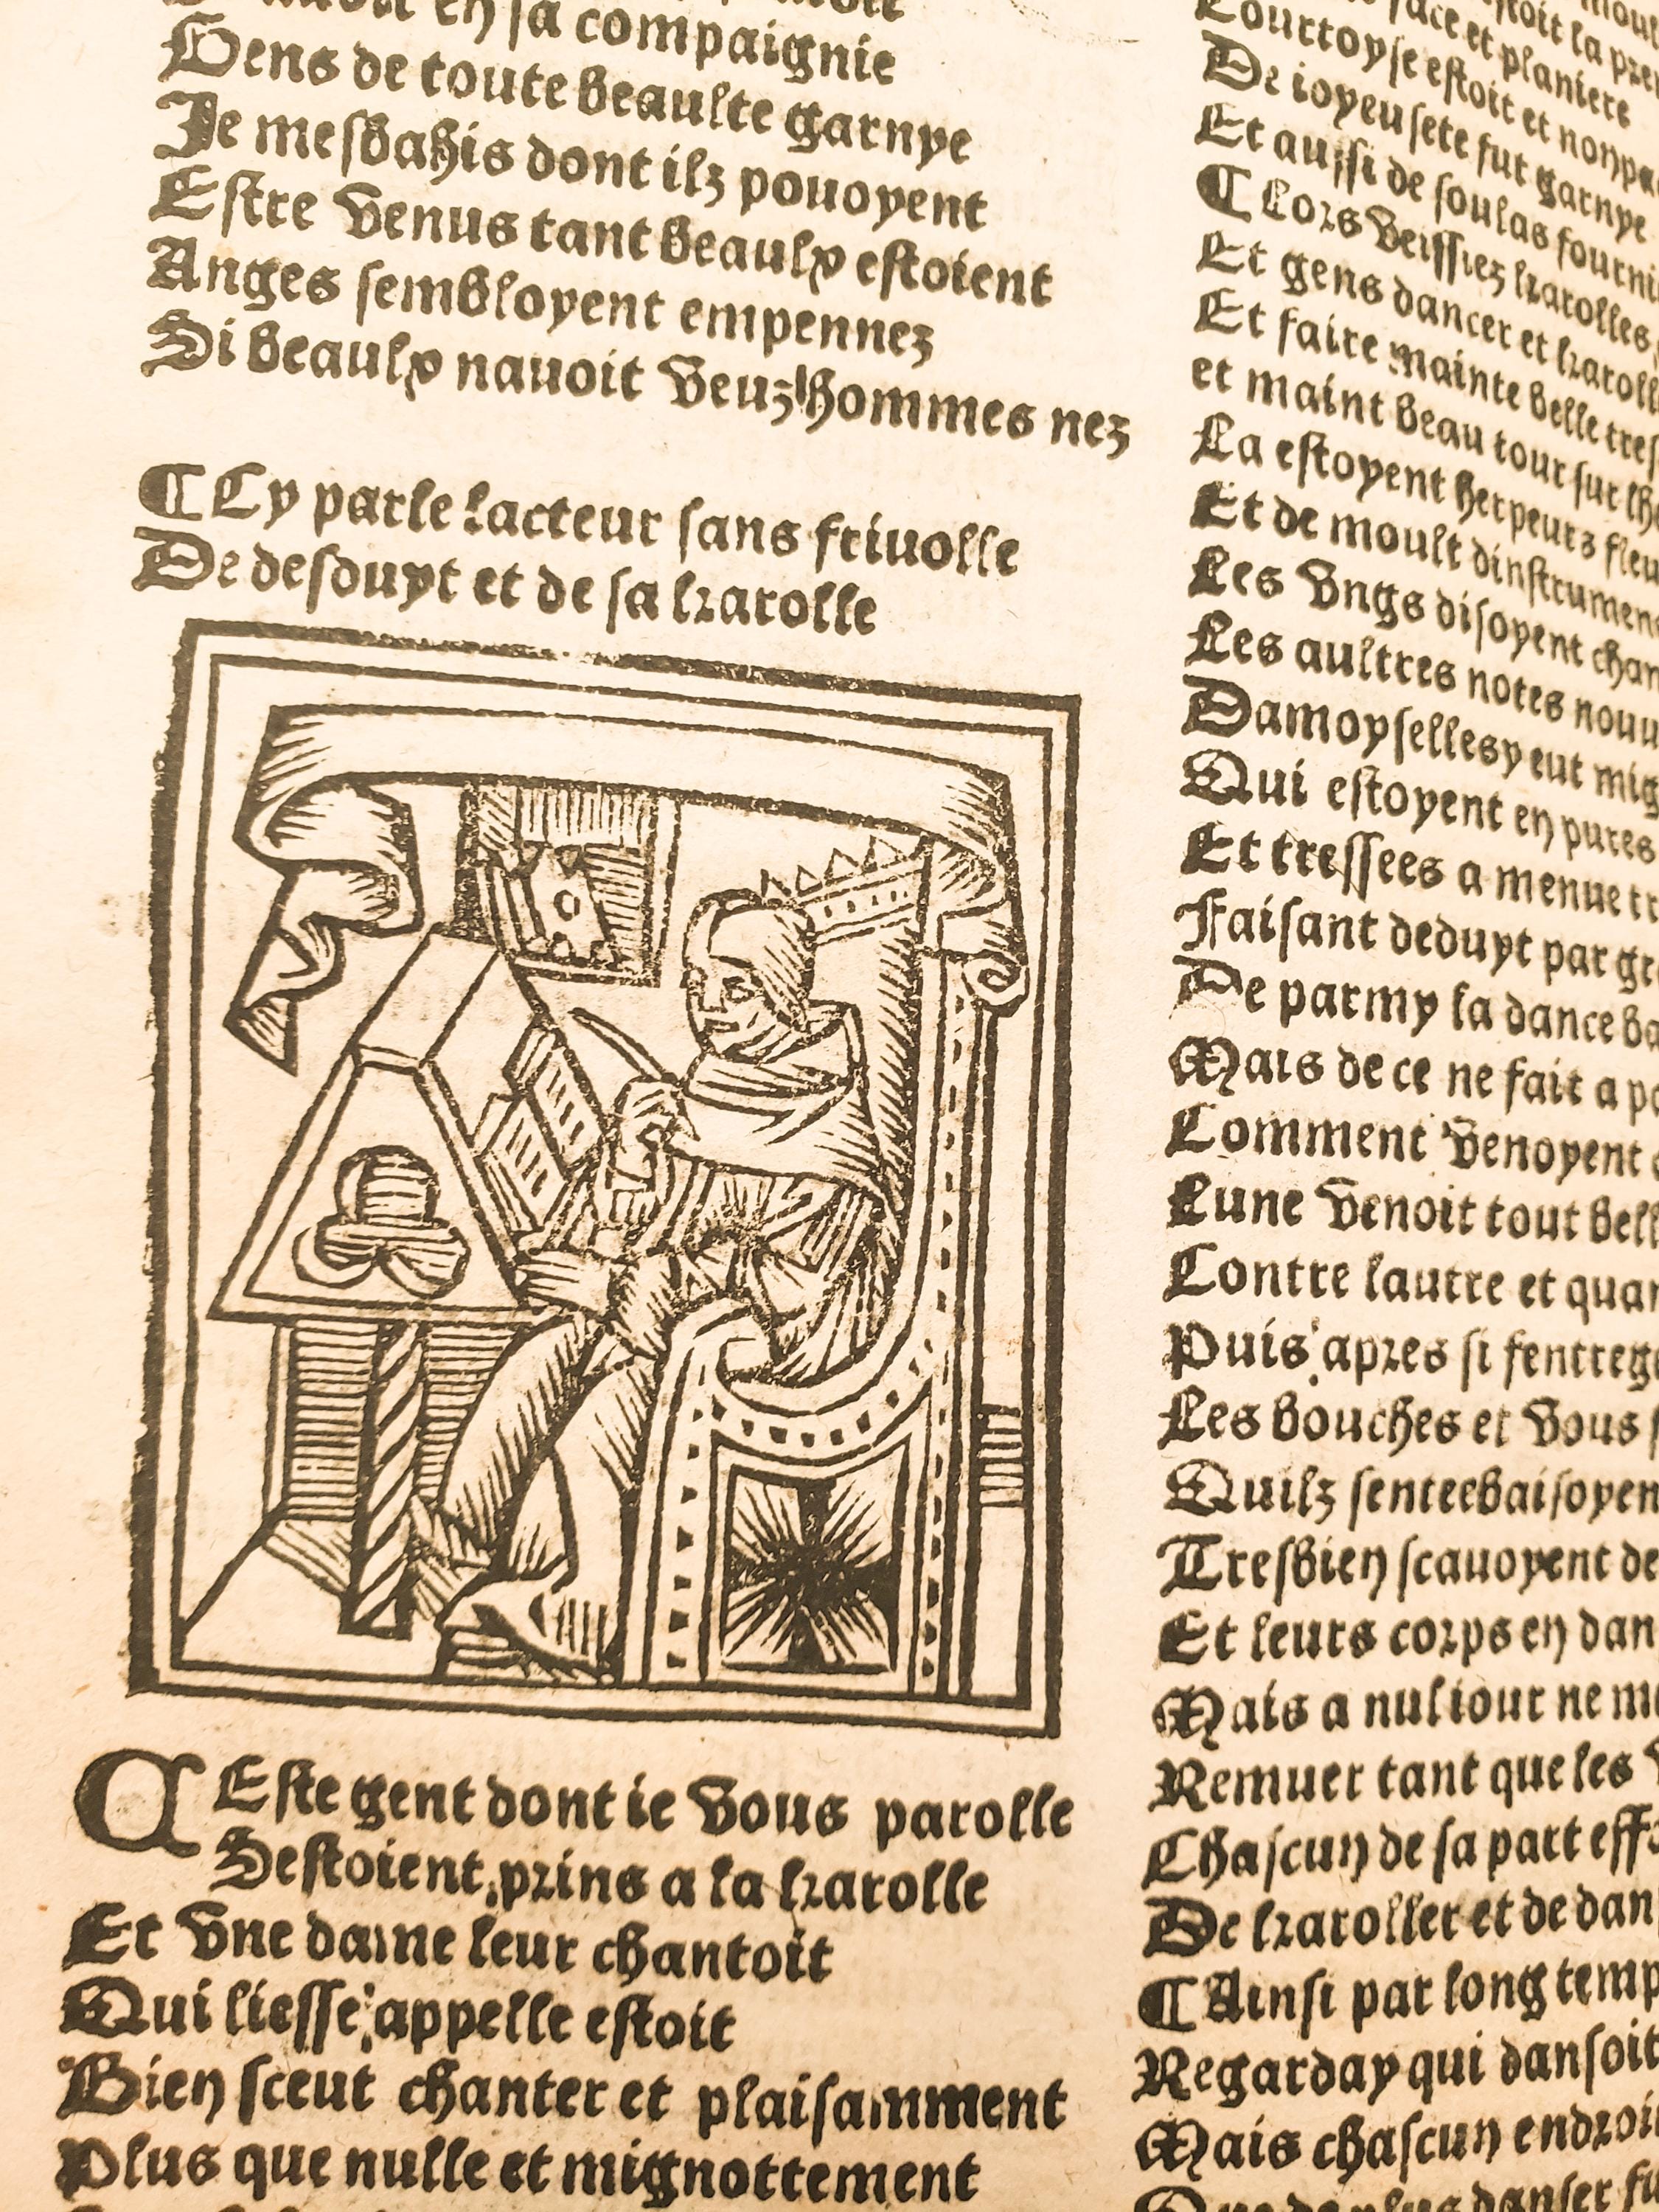 en sa compaignie
Gens de toute beaulte garnye
Je mesbahis dont ilz pouoyent
Estre venus tant beaulx estoient
Anges sembloyent empennez
Si beaulx nauoit veuz hommes nez
¶ Cy parle lacteur sans friuolle
De desduyt et de sa karolle
CEste gent dont ie vous parolle
Sestoient prins a la karolle
Et vne dame leur chantoit
Qui liesse appelle estoit
Bien sceut chanter et plaisamment
Plus que nulle et mignottement
face et planiere
Courtoyse estoit et
De ioyeusete fut garnye
Et aussi de soulas
¶ Lors veissiez karolles
Et gens dancer et
Et faire mainte belle
et maint beau tour sur
La estoyent herpeurs
Et de moult
Les vngs disoyent
Les aultres notes
Damoyselles y eut
Qui estoyent en pures
Et tressees a menue
Faisant deduyt par
De parmy la dance
Mais de ce ne fait a
Comment venoyent
Lune venoit tout
Contre lautre et
Puis apres si
Les bouches et vous
Quilz sentrebaisoyen
Tresbien scauoyent de
Et leurs corps en
Mais a nul iour ne
Remuer tant que les
Chascun de sa part
De karoller et de
¶ Ainsi par long
Regarday qui dansoit
Mais chascun